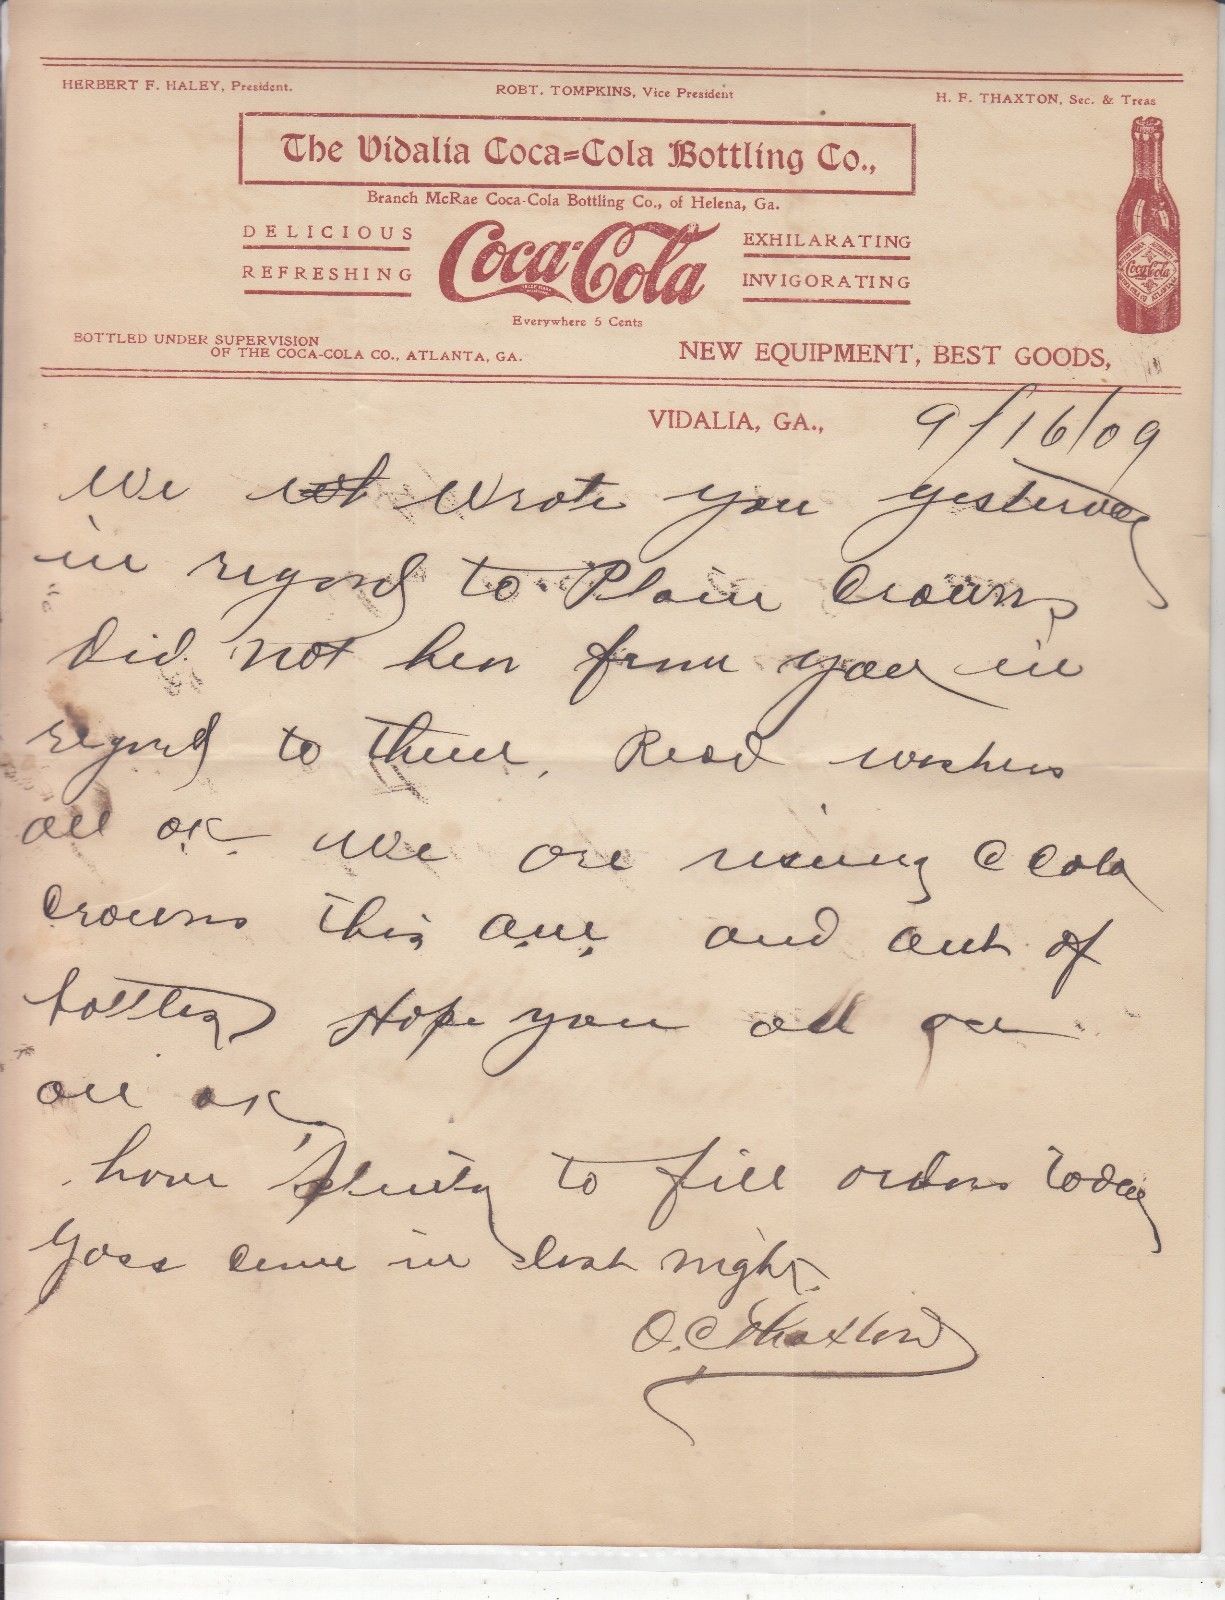 HERBERT F. HALEY, President.
ROBT. TOMPKINS, Vice President
H. F. THAXTON, Sec. & Treas
The Vidalia Coca=Cola Bottling Co.,
Branch McRae Coca-Cola Bottling Co., of Helena, Ga.
DELICIOUS
REFRESHING
Coca-Cola
EXHILARATING
INVIGORATING
Everywhere 5 Cents
Coca-Cola
BOTTLED UNDER SUPERVISION
OF THE COCA-COLA CO., ATLANTA, GA.
NEW EQUIPMENT, BEST GOODS,
VIDALIA, GA., 9/16/09
We Wrote you yesterday
in regard to Plain Crowns
did not hear from you in
regard to them. Recd washers
all ok. We are using C Cola
Crowns this a.m. and out of
bottles Hope you all are
all ok
have plenty to fill orders today
Goss came in last night.
O. C. Thaxton